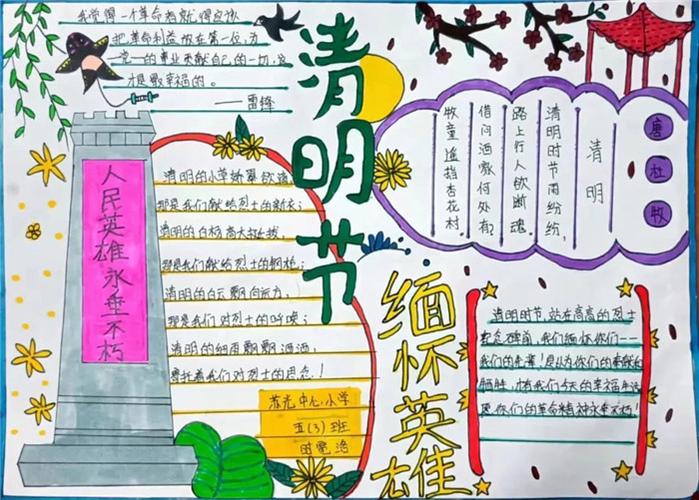 我觉得一个革命者就得应该
把革命利益放在第一位,为
党的事业贡献自己的一切,这
才是最幸福的。
——雷锋
清明节
唐杜牧
清明
清明时节雨纷纷,
路上行人欲断魂。
借问酒家何处有?
牧童遥指杏花村
人民英雄永垂不朽
清明的小草娇翠欲滴
那是我们献给烈士的新衣;
清明的白杨高大挺拔
那是我们献给烈士的钢枪;
清明的白云飘向远方,
那是我们对烈士的呼唤;
清明的细雨飘飘洒洒,
寄托着我们对烈士的思念!
苏光中心小学
五(3)班
缅怀英雄
清明时节,站在高高的烈士
纪念碑前,我们缅怀你们——
我们的先辈!是认为你们的奉献
牺牲,才有我们今天的幸福生活
愿你们的革命精神永垂不朽!